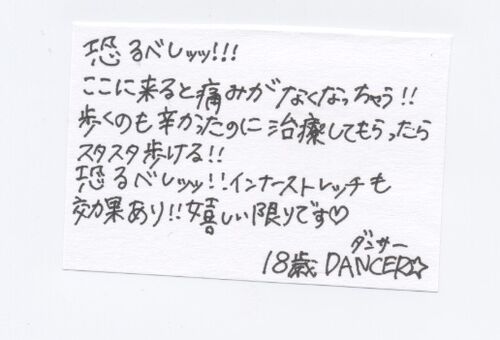 恐るベしッッ!!!
ここに来ると痛みがなくなっちゃう!!
歩くのも辛かったのに治療してもらったら
スタスタ歩ける!!
恐るベしッッ!!インナーストレッチも
効果あり!!嬉しい限りです♡
ダンサー
18歳 DANCER☆